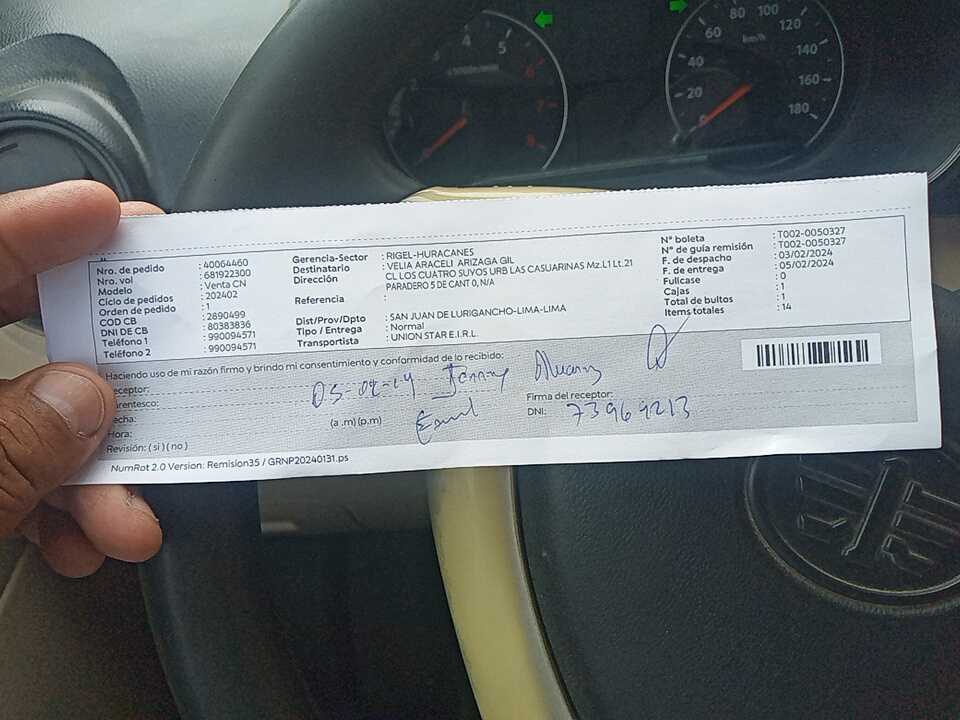 4 5 6 7 8
0 20 40 60 80 100 120 140 160 180
km/h
Nro. de pedido : 40064460
Nro. vol : 681922300
Modelo : Venta CN
Ciclo de pedidos : 202402
Orden de pedido : 1
COD CB : 2890499
DNI DE CB : 80383836
Teléfono 1 : 990094571
Teléfono 2 : 990094571
Gerencia-Sector : RIGEL-HURACANES
Destinatario : VELIA ARACELI ARIZAGA GIL
Dirección : CL LOS CUATRO SUYOS URB LAS CASUARINAS Mz.L1 Lt.21
PARADERO 5 DE CANT 0, N/A
Referencia :
Dist/Prov/Dpto : SAN JUAN DE LURIGANCHO-LIMA-LIMA
Tipo / Entrega : Normal
Transportista : UNION STAR E.I.R.L.
N° boleta : T002-0050327
N° de guía remisión : T002-0050327
F. de despacho : 03/02/2024
F. de entrega : 05/02/2024
Fullcase : 0
Cajas : 1
Total de bultos : 1
Items totales : 14
Haciendo uso de mi razón firmo y brindo mi consentimiento y conformidad de lo recibido:
eceptor:
arentesco:
echa: (a .m) (p.m)
Hora:
Revisión: ( si ) ( no )
Firma del receptor:
DNI: 73969213
NumRot 2.0 Version: Remision35 / GRNP20240131.ps